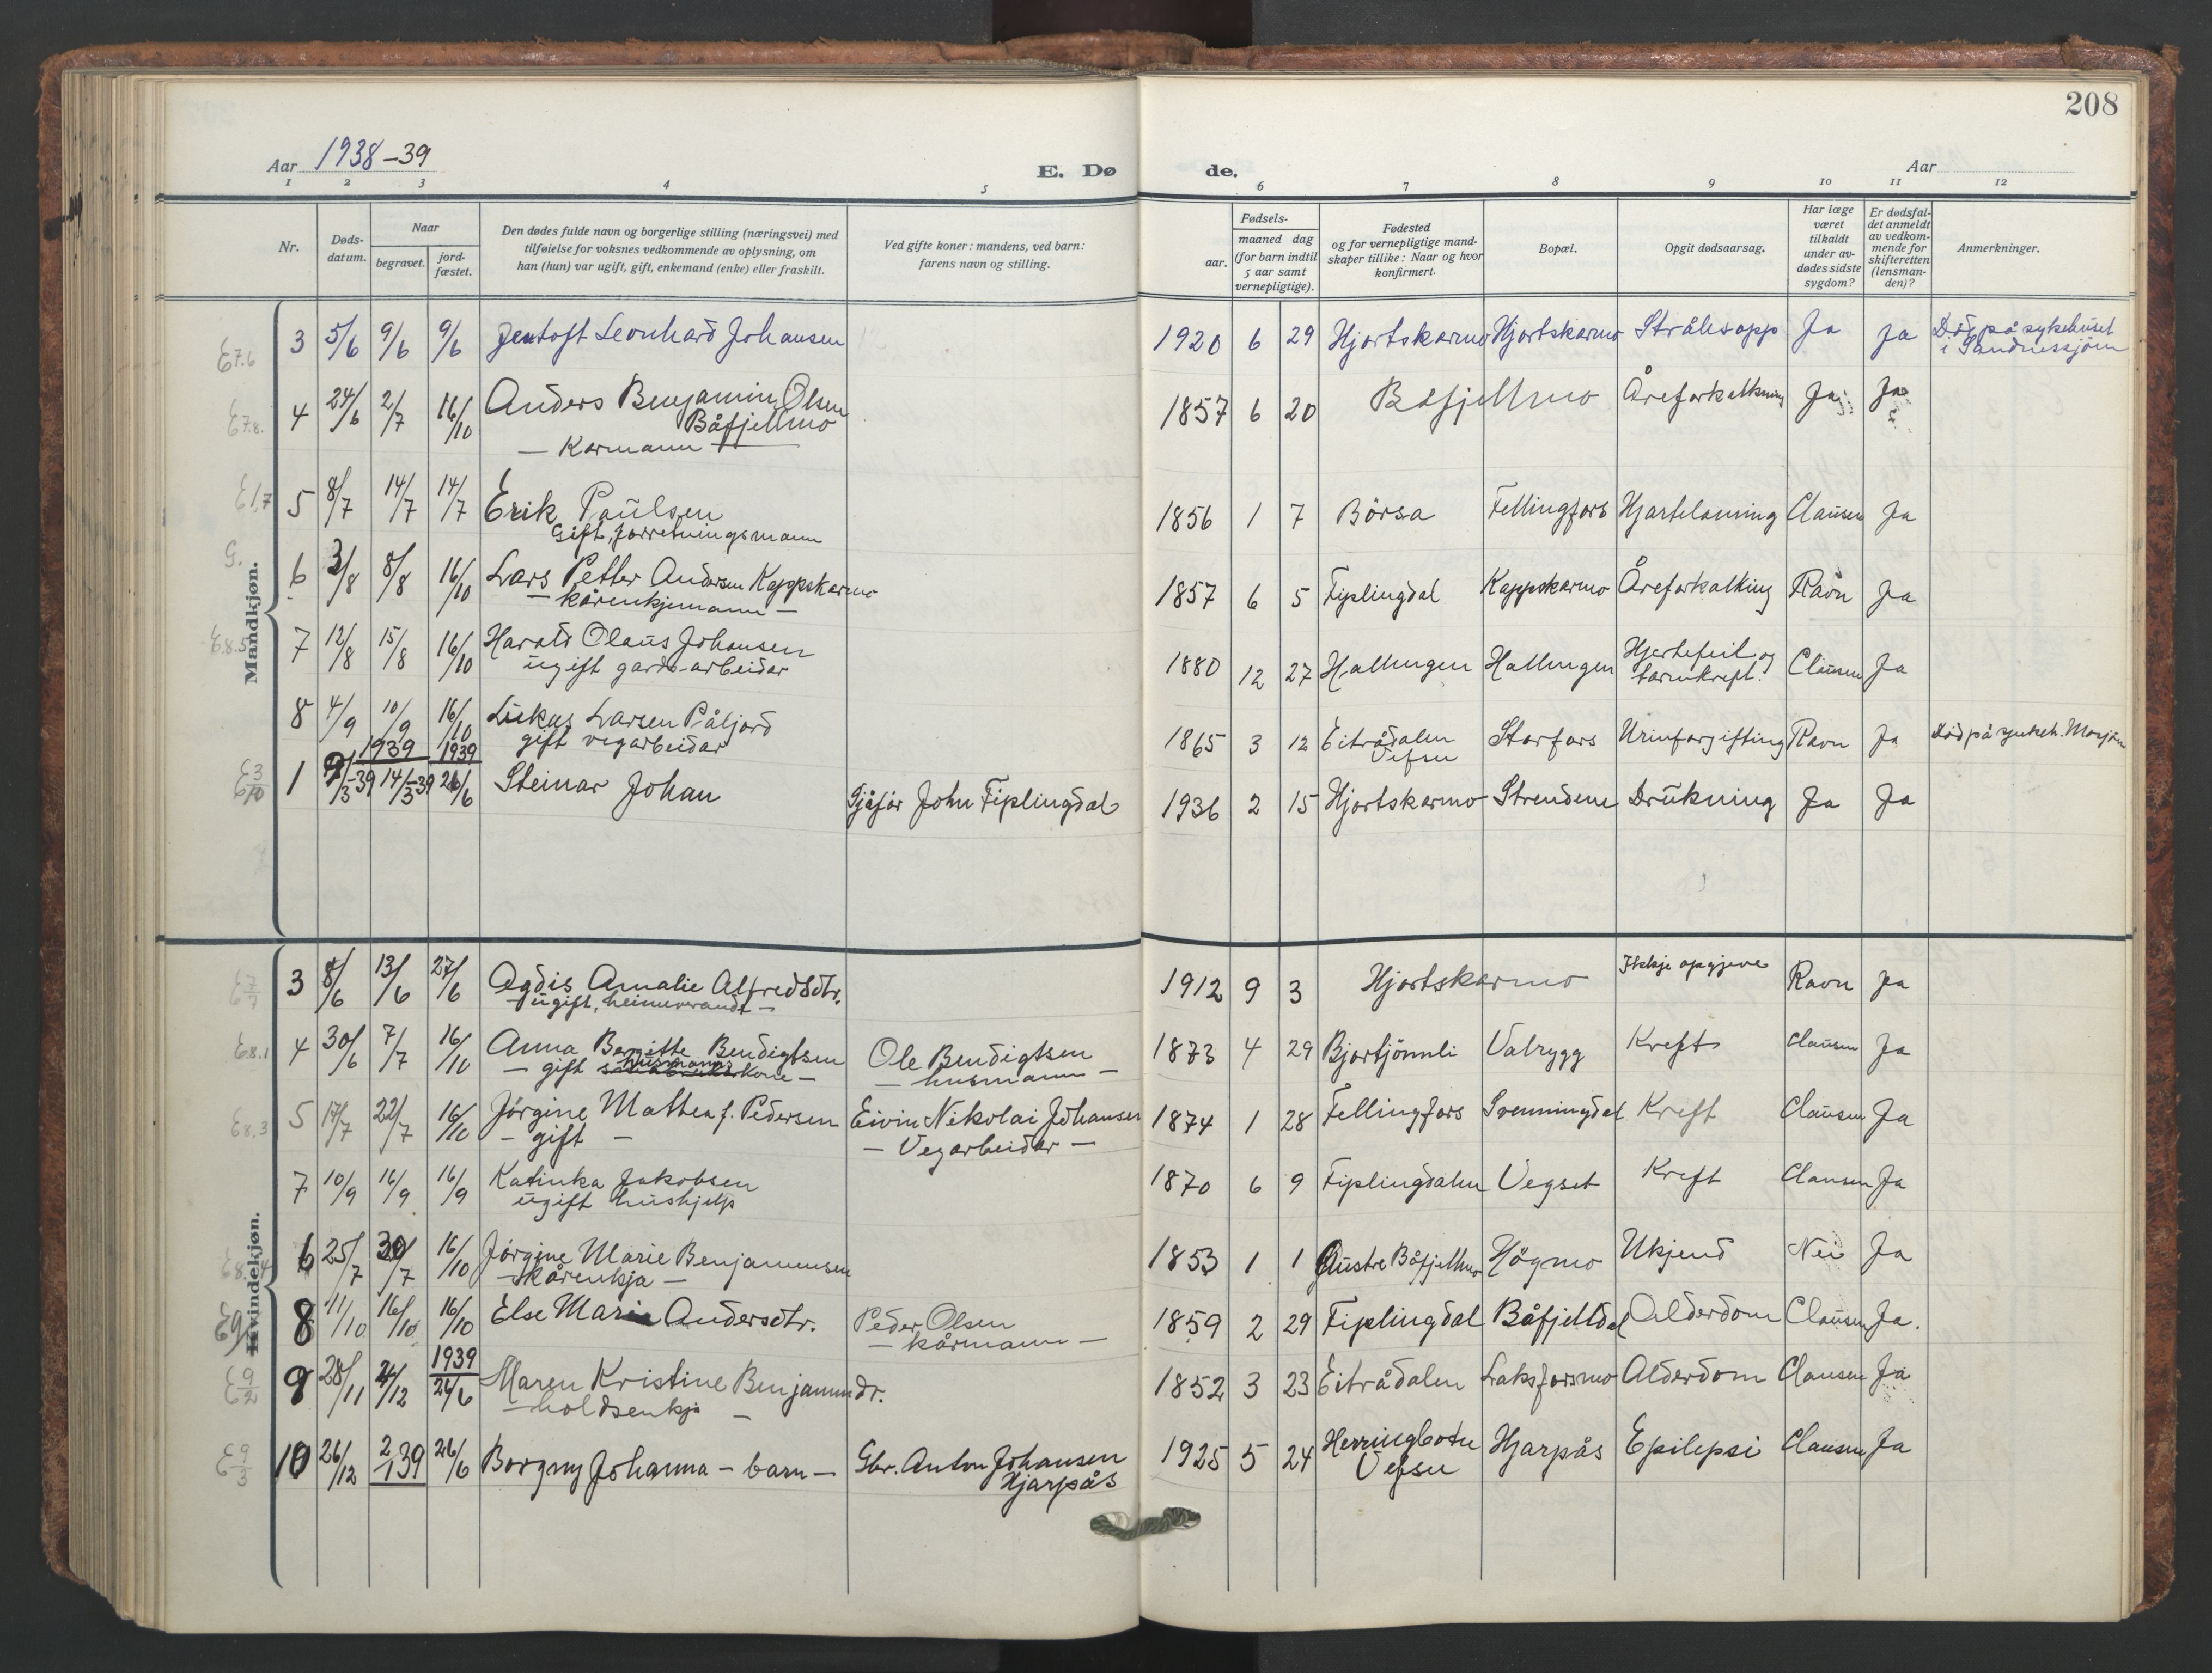 208
Aar 1938-39
E. Døde.
Aar
1 2 3 4 5 6 7 8 9 10 11 12
Nr.
Døds-datum.
Naar
begravet.
jord-fæstet.
Den dødes fulde navn og borgerlige stilling (næringsvei) med
tilføielse for voksnes vedkommende av oplysning, om
han (hun) var ugift, gift, enkemand (enke) eller fraskilt.
Ved gifte koner: mandens, ved barn:
farens navn og stilling.
Fødsels-
aar.
maaned dag
(for barn indtil
5 aar samt
vernepligtige).
Fødested
og for vernepligtige mand-
skaper tillike: Naar og hvor
konfirmert.
Bopæl.
Opgit dødsaarsag.
Har læge
været
tilkaldt
under av-
dødes sidste
sygdom?
Er dødsfal-
det anmeldt
av vedkom-
mende for
skifteretten
(lensman-
den)?
Anmerkninger.
Mandkjøn.
3 5/6 9/6 9/6 Jentoft Leonhard Johansen 1920 6 29 Hjortskarmo Hjortskarmo Strålesopp Ja Ja Død på sykehuset
i Sandnessjøen
4 24/6 2/7 16/10 Anders Benjamin Olsen 1857 6 20 Båfjellmo Åreforkalkning Ja Ja
Båfjellmo
— Kårmann —
5 8/7 14/7 14/7 Erik Paulsen 1856 1 7 Börsa Fellingfors Hjartelamming Clausen Ja
Gift, forretningsmann
6 3/8 8/8 16/10 Lars Petter Andersen Kappskarmo 1857 6 5 Fiplingdal Kappskarmo Åreforkalking Ravn Ja
— kårenkjemann —
7 12/8 15/8 16/10 Harald Olaus Johansen 1880 12 27 Hallingen Hallingen Hjertefeil og Clausen Ja
ugift gards-arbeidar tarmkreft.
8 4/9 10/9 16/10 Lukas Larsen Påljord 1865 3 12 Eiterådalen Storfors Urinforgifting Ravn Ja Död på sjukeh. Mosjøen
gift vegarbeidar Vefsn
1939 1939
1 9/3-39 14/3-39 26/6 Steinar Johan Sjåfør John Fiplingdal 1936 2 15 Hjortskarmo Strendene Drukning Ja Ja
Kvindekjøn.
3 8/6 13/6 27/6 Agdis Amalie Alfredsdtr. 1912 9 3 Hjortskarmo Ikkje opgjeve Ravn Ja
— ugift, heimeverande —
4 30/6 7/7 16/10 Anna Bergitte Bendigtsen Ole Bendigtsen 1873 4 29 Bjortjönnli Valrygg Kreft Clausen Ja
— gift husmanns kone — — husmann —
5 17/7 22/7 16/10 Jörgine Mathea f. Pedersen Eivin Nikolai Johansen 1874 1 28 Fellingfors Svenningdal Kreft Clausen Ja
— gift — — Vegarbeidar —
7 10/9 16/9 16/9 Katinka Jakobsen 1870 6 9 Fiplingdalen Vegset Kreft Clausen Ja
ugift hushjelp
6 25/7 30/7 16/10 Jörgine Marie Benjaminsen 1853 1 1 Austre Båfjellmo Högmo Ukjend Nei Ja
— kårenkja —
8 11/10 16/10 16/10 Else Marie Andersdtr. Peder Olsen 1859 2 29 Fiplingdal Båfjelldal Alderdom Clausen Ja.
— kårmann —
1939
9 28/11 4/12 26/6 Maren Kristine Benjamindr. 1852 3 23 Eitrådalen Laksforsmo Alderdom Clausen Ja
— holdsenkja —
10 26/12 2/1 39 26/6 Borgny Johanna — barn — Gbr. Anton Johansen 1925 5 24 Herringbotn Hjarpås Epilepsi Clausen Ja
Hjarpås Vefsn